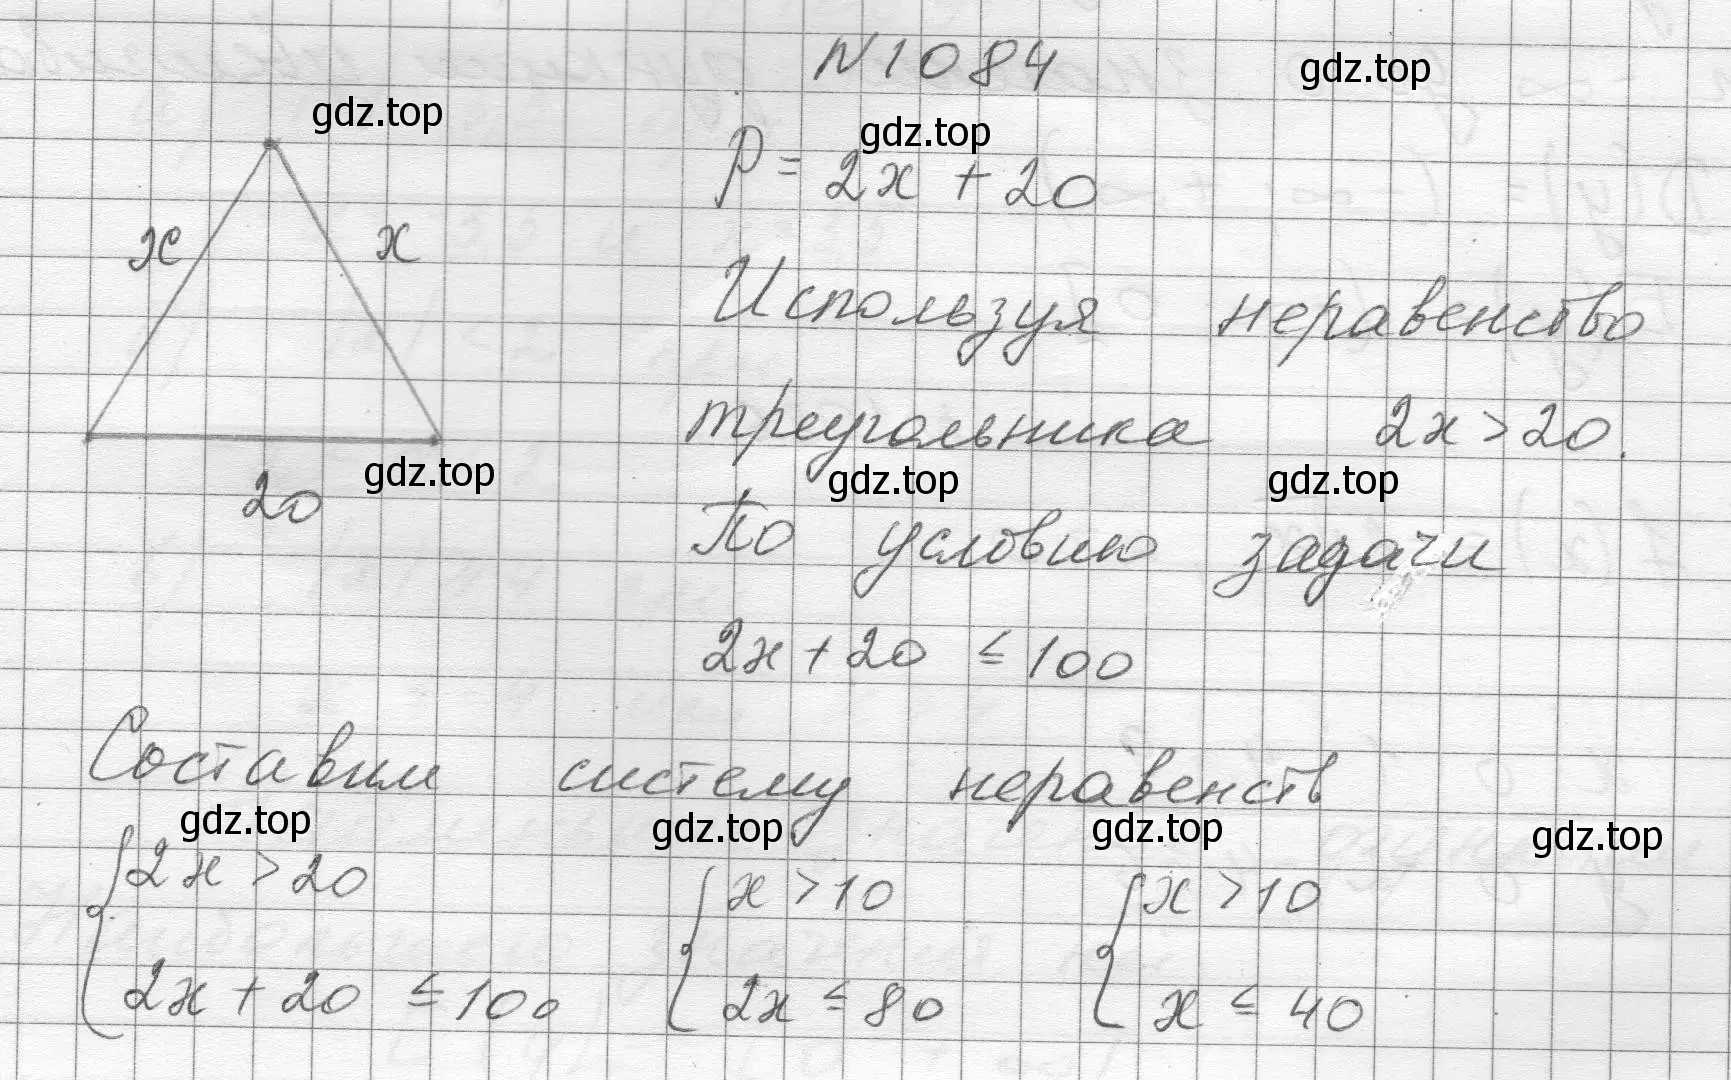 N 1084
gdz.top
gdz.top
gdz.top
P = 2x + 20
x
x
Используя неравенство
треугольника 2x > 20.
20
gdz.top
gdz.top
gdz.top
По условию задачи
2x + 20 ≤ 100
Составим систему неравенств
gdz.top
gdz.top
gdz.top
gdz.top
{ 2x > 20 { x > 10 { x > 10
2x + 20 ≤ 100 2x ≤ 80 x ≤ 40